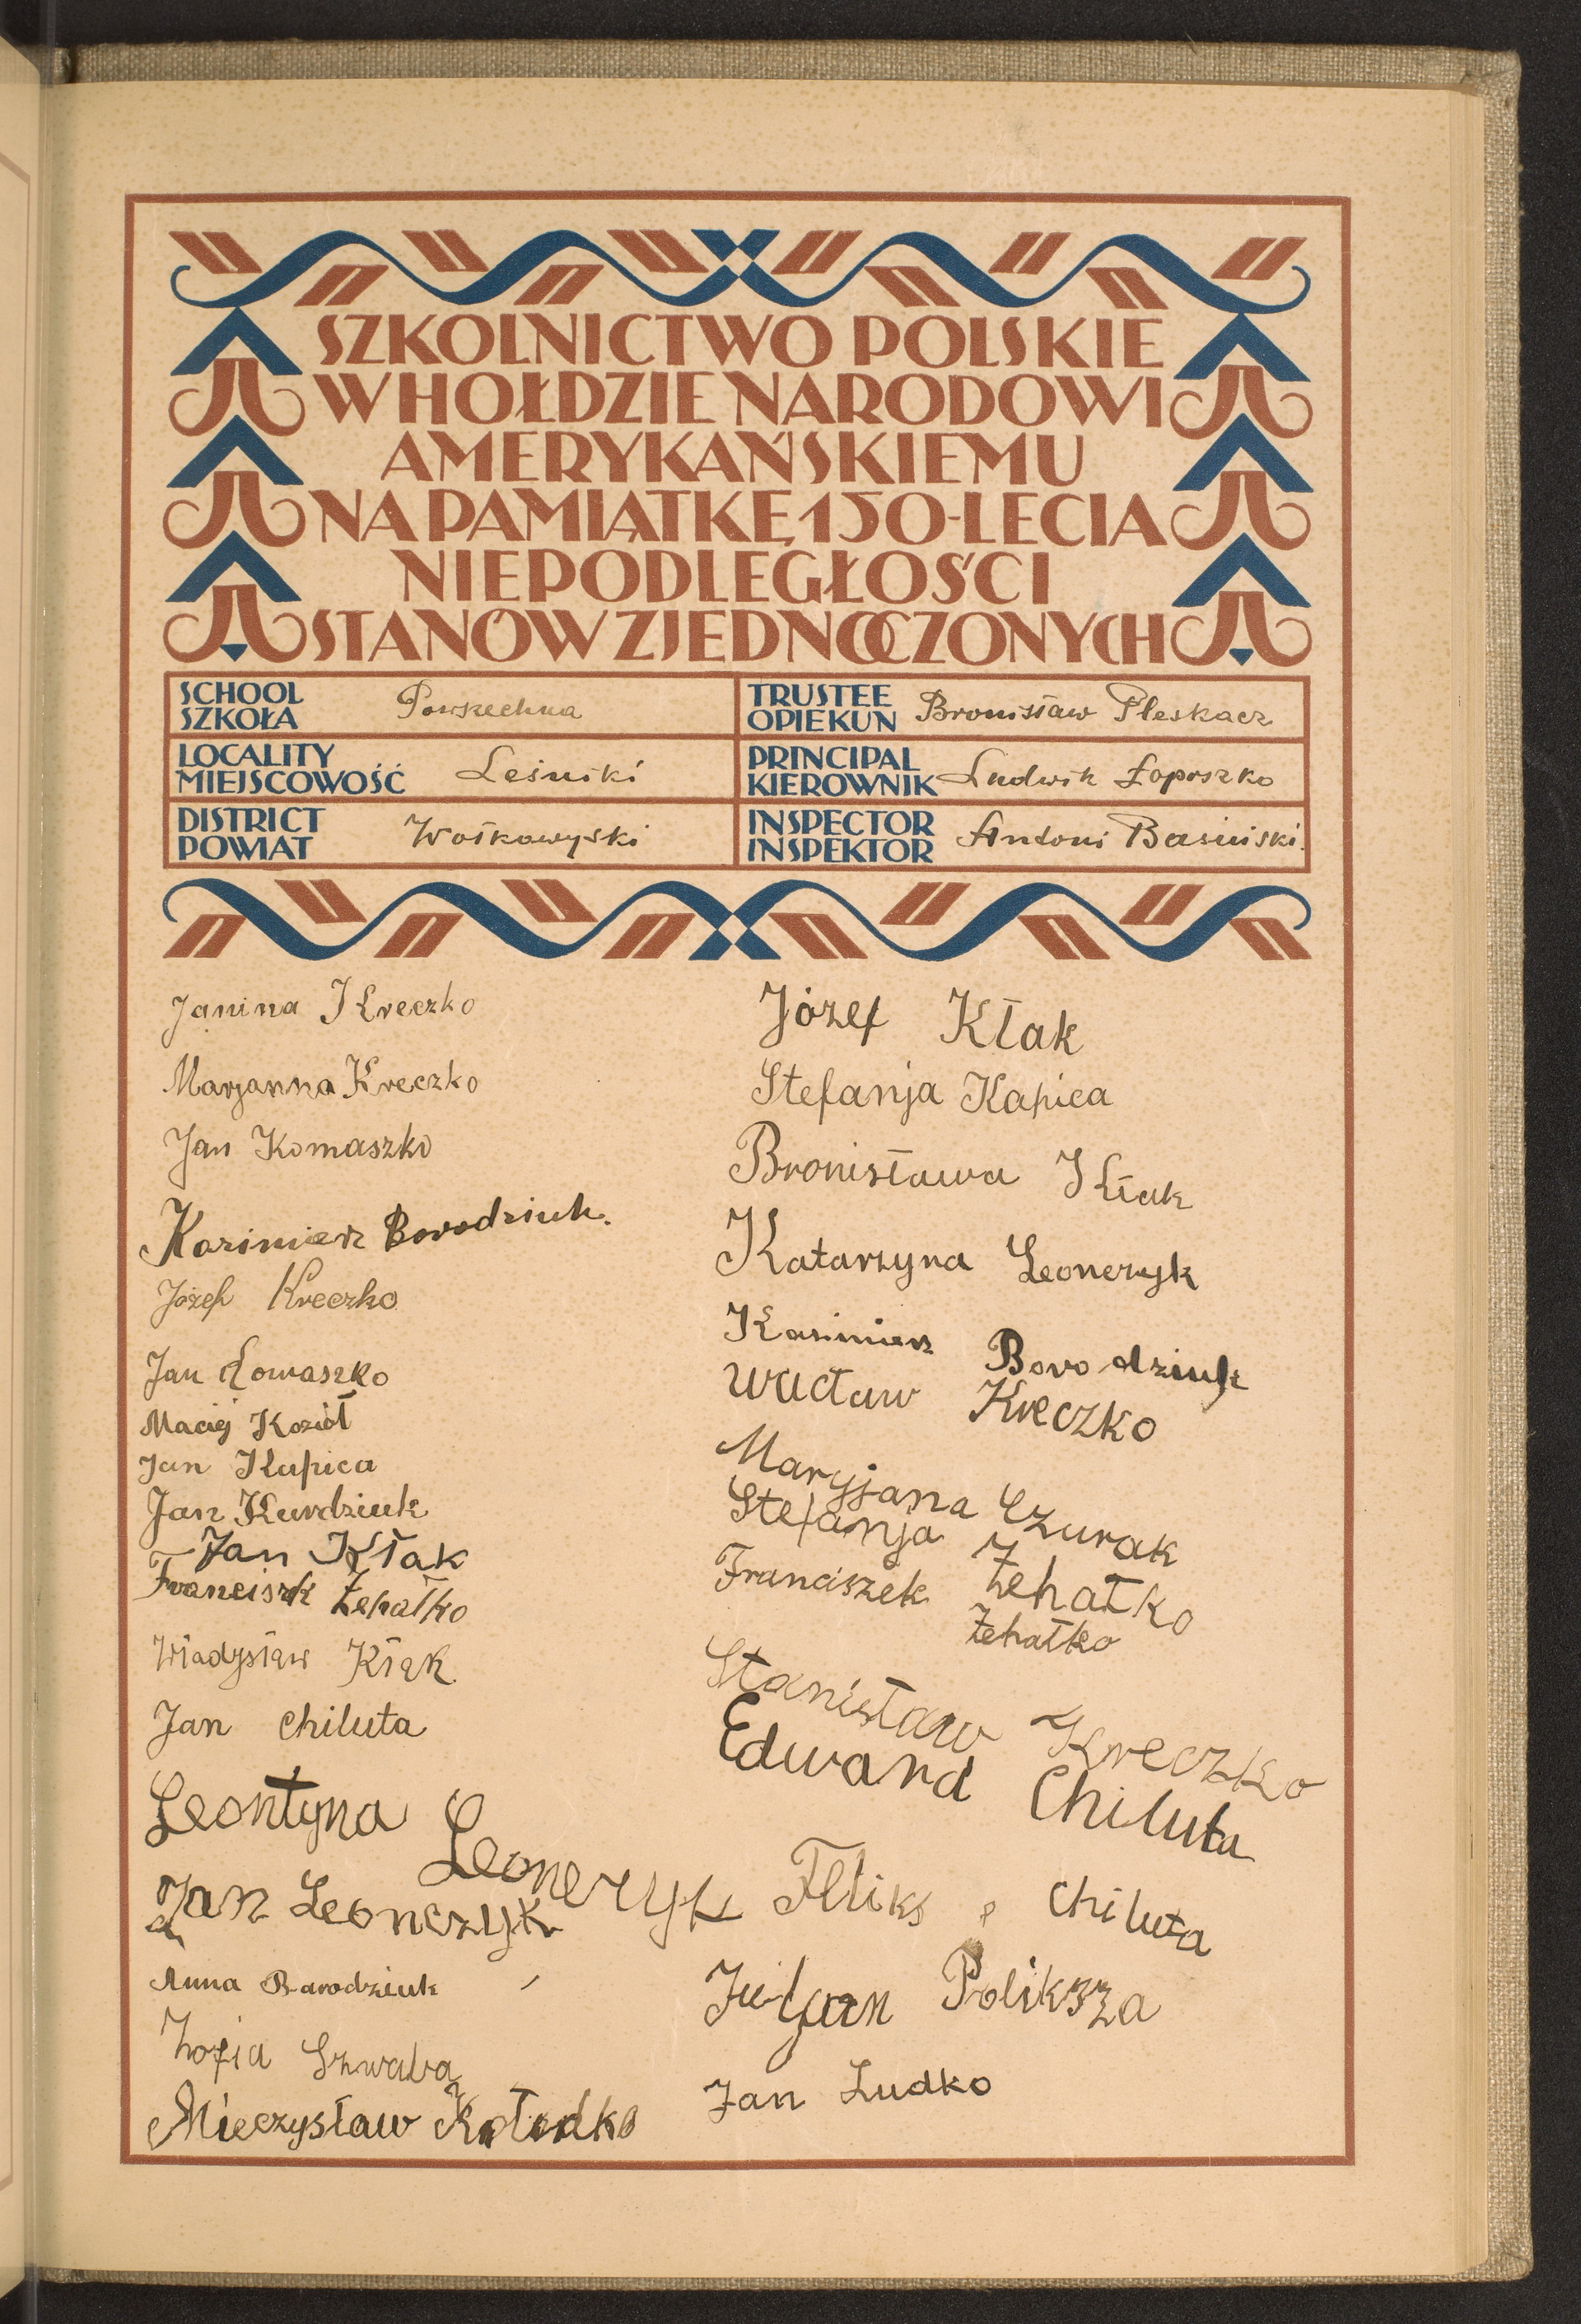 SZKOLNICTWO POLSKIE
W HOŁDZIE NARODOWI
AMERYKAŃSKIEMU
NA PAMIĄTKĘ 150-LECIA
NIEPODLEGŁOŚCI
STANÓW ZJEDNOCZONYCH
SCHOOL
SZKOŁA
Powszechna
TRUSTEE
OPIEKUN
Bronisław Pleskacz
LOCALITY
MIEJSCOWOŚĆ
Leśniki
PRINCIPAL
KIEROWNIK
Ludwik Łoposzko
DISTRICT
POWIAT
Wołkowyski
INSPECTOR
INSPEKTOR
Antoni Basiński.
Janina Kreczko
Marjanna Kreczko
Jan Komaszko
Kazimierz Borodziuk.
Józef Kreczko
Jan Łomaszko
Maciej Kozioł
Jan Kapica
Jan Kurdziuk
Jan Kłak
Franciszk Żehałko
Władysław Kłak
Jan Chiluta
Leontyna Leonczyk
Jan Leonczyk
Anna Barodziuk
Zofia Szwaba
Mieczysław Kołodko
Józef Kłak
Stefanja Kapica
Bronisława Kłak
Katarzyna Leonczyk
Kazimierz Borodziuk
Wacław Kreczko
Maryjana Czurak
Stefanja Żehałko
Franciszek Żehałko
Stanisław Kreczko
Edward Chiluta
Feliks Chiluta
Juljan Poliksza
Jan Ludko